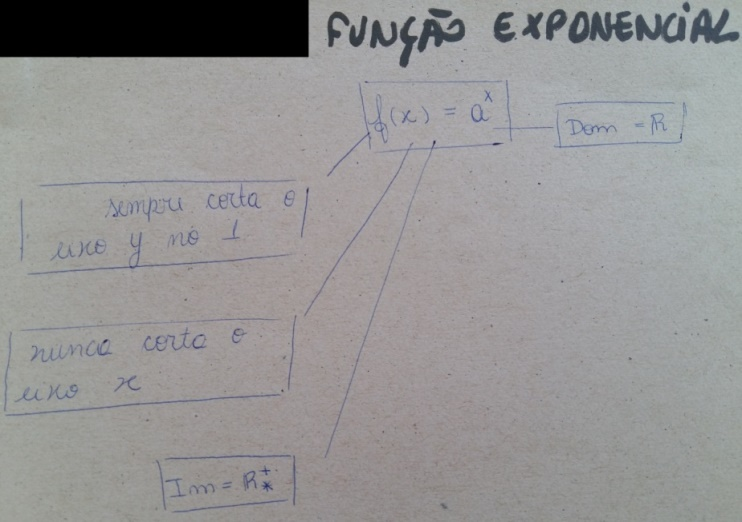 FUNÇÃO EXPONENCIAL
f(x) = aˣ
Dom = ℝ
sempre corta o
eixo y no 1
nunca corta o
eixo x
Im = ℝ⁺*